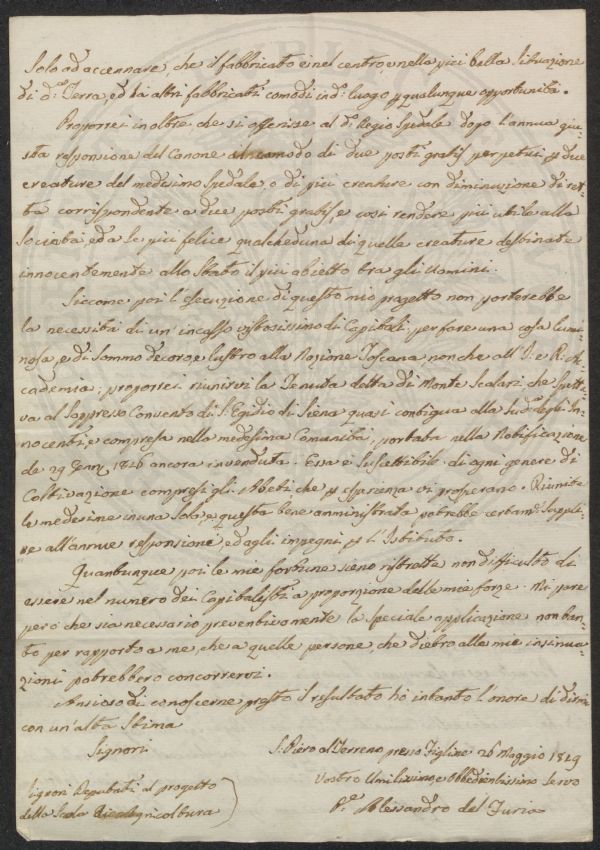 Solo ad accennare, che il fabbricato è nel centro, e nella più bella situazione
di d.ª Terra, ed ha altri fabbricati comodi in d.º luogo p qualunque opportunità.
Proporrei inoltre che si offerisse al d.º Regio Spedale dopo l'annua giu-
sta responsione del Canone il comodo di due posti gratis perpetui p due
creature del medesimo Spedale, o di più creature con diminuzione di ret-
ta corrispondente a due posti gratis, e così rendere più utile alla
Società, ed a se più felice qualcheduna di quelle creature destinate
innocentemente allo Stato il più abietto tra gli Uomini.
Siccome poi l'esecuzione di questo mio progetto non porterebbe
la necessità di un'incasso vistosissimo di Capitali, per fare una cosa lumi-
nosa, e di sommo decoro, e lustro alla Nazione Toscana non che all'I. e R. Ac-
cademia; proporrei riunirvi la Tenuta detta di Monte Scalari, che spetta-
va al Soppresso Convento di S. Egidio di Siena quasi contigua alla sud.ª degli In-
nocenti, e compresa nella medesima Comunità, portata nella Notificazione
de 29 Genn. 1826 ancora invenduta. Essa è suscettibile di ogni genere di
Coltivazione compresi gli Abeti che p esperienza vi prosperano. Riunite
le medesime in una sola, e questa bene amministrata potrebbe certam. suppli-
re all'annue responsione, ed agli impegni p l'Istituto.
Quantunque poi le mie fortune sieno ristrette non difficulto di
essere nel numero dei Capitalisti a proporzione delle mie forze. Mi pare
però che sia necessario preventivamente la speciale applicazione non tan-
to per rapporto a me, che a quelle persone, che dietro alle mie insinua-
zioni potrebbero concorrervi.
Ansioso di conoscerne presto il resultato ho intanto l'onore di dirmi
con un'alta Stima
Signori
S. Piero al Terreno presso Figline 26 Maggio 1829
Vostro Umilissimo, e Obbedientissimo Servo
P.e Alessandro del Furia
Signori Deputati al progetto
della Scola di Agricoltura